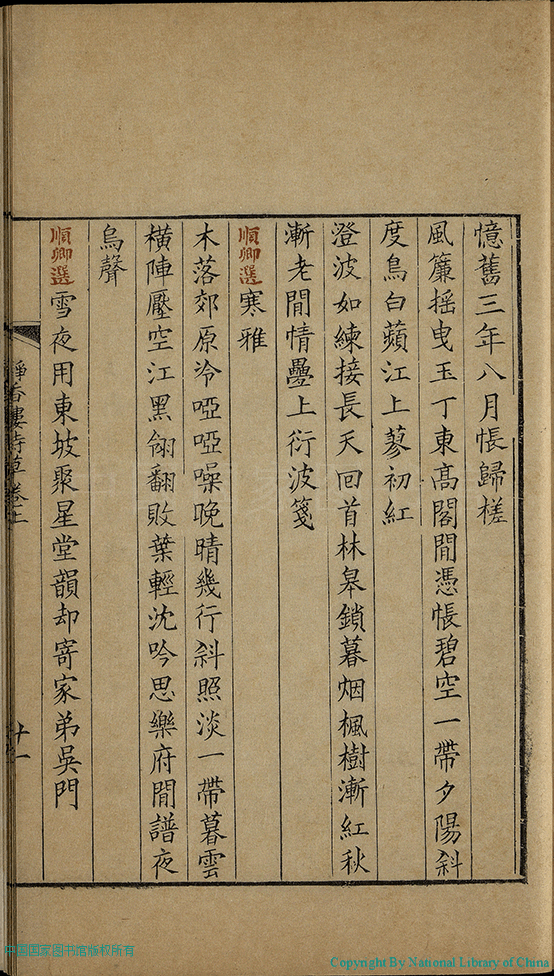 憶舊三年八月悵歸槎
風簾搖曳玉丁東高閣閒憑悵碧空一帶夕陽斜
度鳥白蘋江上蓼初紅
澄波如練接長天回首林皋鎖暮烟楓樹漸紅秋
漸老閒情疊上衍波箋
順卿選寒雅
木落郊原冷啞啞噪晚晴幾行斜照淡一帶暮雲
橫陣壓空江黑翎翻敗葉輕沈吟思樂府閒譜夜
烏聲
順卿選雪夜用東坡聚星堂韻却寄家弟吳門
靜香樓詩草卷上
十一
中国国家图书馆版权所有
Copyright By National Library of China